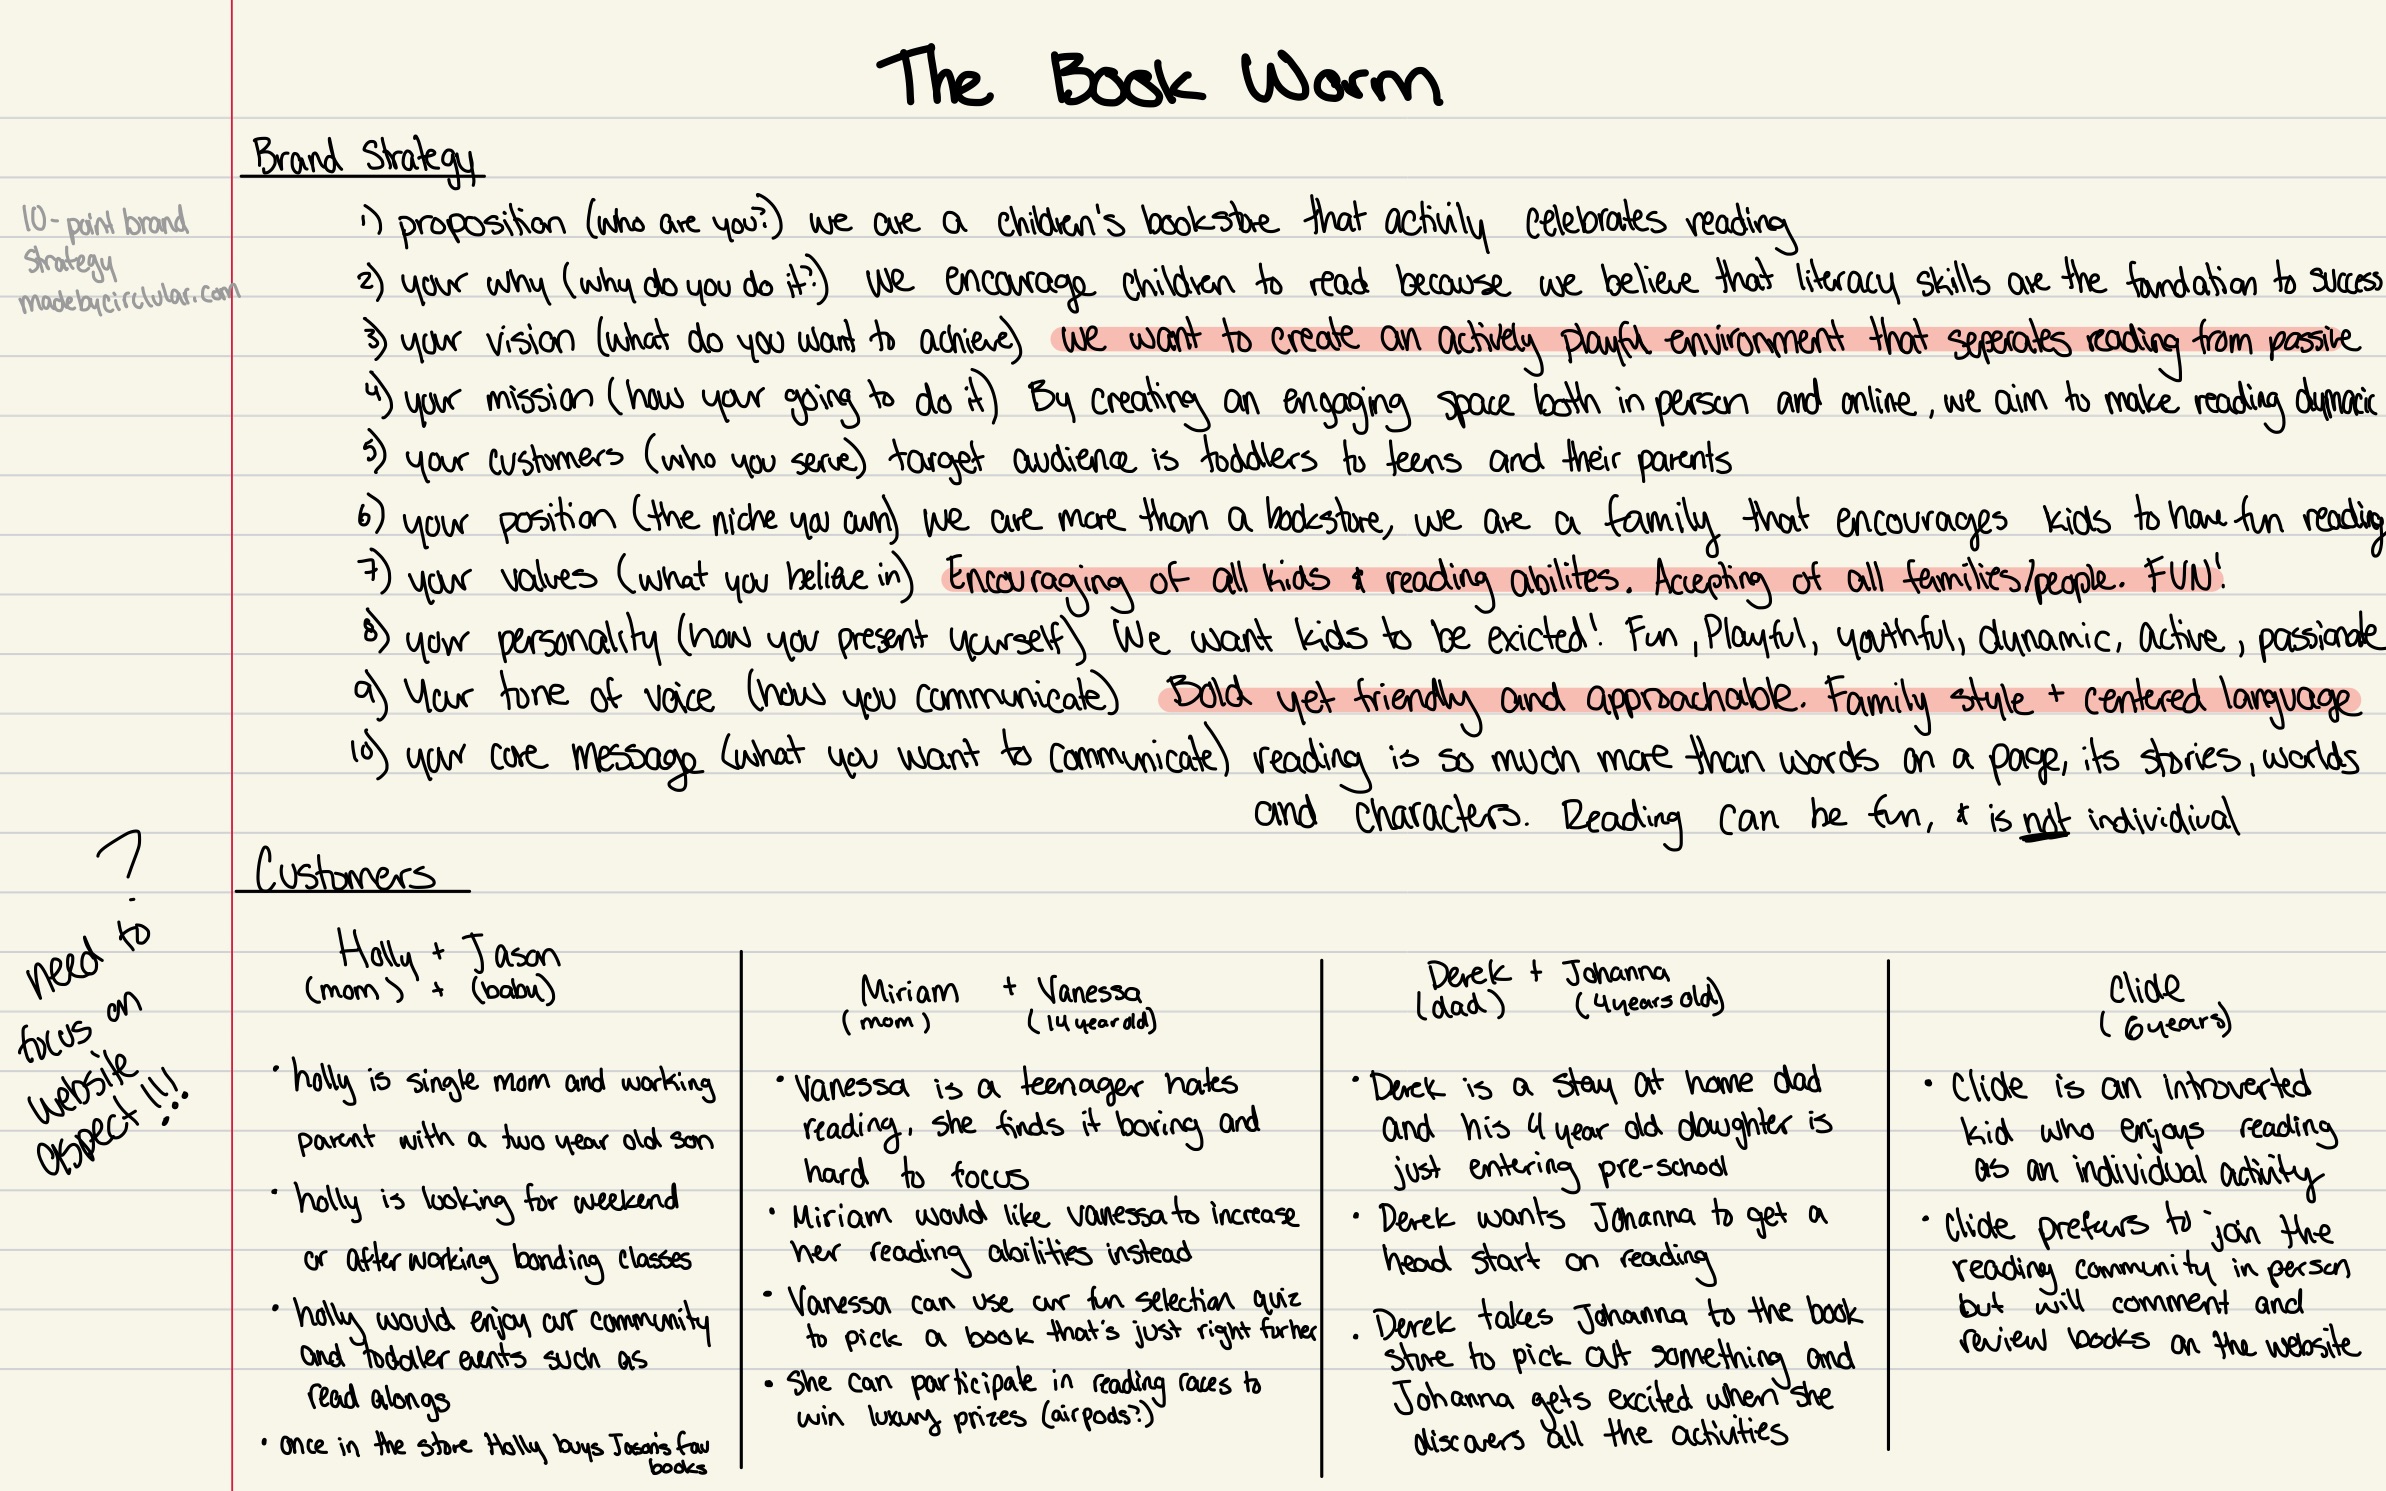 The Book Worm
Brand Strategy
10-point brand
strategy
madebycirclular.com
1) proposition (who are you?) we are a children's bookstore that activily celebrates reading
2) your why (why do you do it?) We encourage children to read because we believe that literacy skills are the foundation to success
3) your vision (what do you want to achieve) we want to create an actively playful environment that seperates reading from passive
4) your mission (how your going to do it) By creating an engaging space both in person and online, we aim to make reading dymacic
5) your customers (who you serve) target audience is toddlers to teens and their parents
6) your position (the niche you own) we are more than a bookstore, we are a family that encourages kids to have fun reading
7) your values (what you believe in) Encouraging of all kids & reading abilites. Accepting of all families/people. FUN!
8) your personality (how you present yourself) We want kids to be exicted! Fun, Playful, youthful, dynamic, active, passionate
9) Your tone of voice (how you communicate) Bold yet friendly and approachable. Family style + centered language
10) your core message (what you want to communicate) reading is so much more than words on a page, its stories, worlds
and characters. Reading can be fun, & is not individual
Customers
?
need to
focus on
website
aspect!!!
Holly + Jason
(mom) + (baby)
• holly is single mom and working
parent with a two year old son
• holly is looking for weekend
or after working bonding classes
• holly would enjoy our community
and toddler events such as
read alongs
• once in the store Holly buys Jason's fav
books
Miriam + Vanessa
(mom) (14 year old)
• Vanessa is a teenager hates
reading, she finds it boring and
hard to focus
• Miriam would like Vanessa to increase
her reading abilities instead
• Vanessa can use our fun selection quiz
to pick a book that's just right for her
• She can participate in reading races to
win luxury prizes (airpods?)
Derek + Johanna
(dad) (4 years old)
• Derek is a stay at home dad
and his 4 year old daughter is
just entering pre-school
• Derek wants Johanna to get a
head start on reading
• Derek takes Johanna to the book
store to pick out something and
Johanna gets excited when she
discovers all the activities
Clide
(6 years)
• Clide is an introverted
kid who enjoys reading
as an individual activity
• Clide prefurs to join the
reading community in person
but will comment and
review books on the website